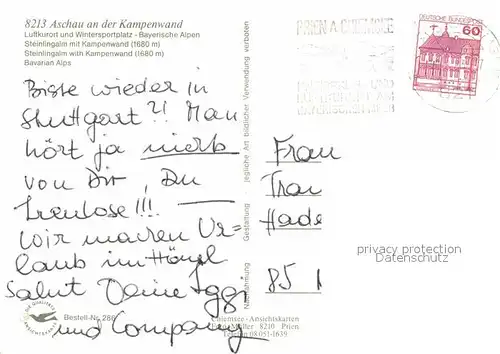 8213 Aschau an der Kampenwand
Luftkurort und Wintersportplatz - Bayerische Alpen
Steinlingalm mit Kampenwand (1680 m)
Steinlingalm with Kampenwand (1680 m)
Bavarian Alps
Biste wieder in
Stuttgart?! Man
hört ja nichts
von Dir, Du
Treulose!!!
Wir machen Ur=
laub im
Salut Deine Iggi
und Company
Bestell-Nr. 286
jegliche Art bildlicher Verwendung verboten
Nachahmung Gestattung
PRIEN A CHIEMSEE
DEUTSCHE BUNDESPOST
60
Frau
Hade
85
privacy protection
Datenschutz
Chiemsee-Ansichtskarten
Müller 8210 Prien
Telefon 08051-1639